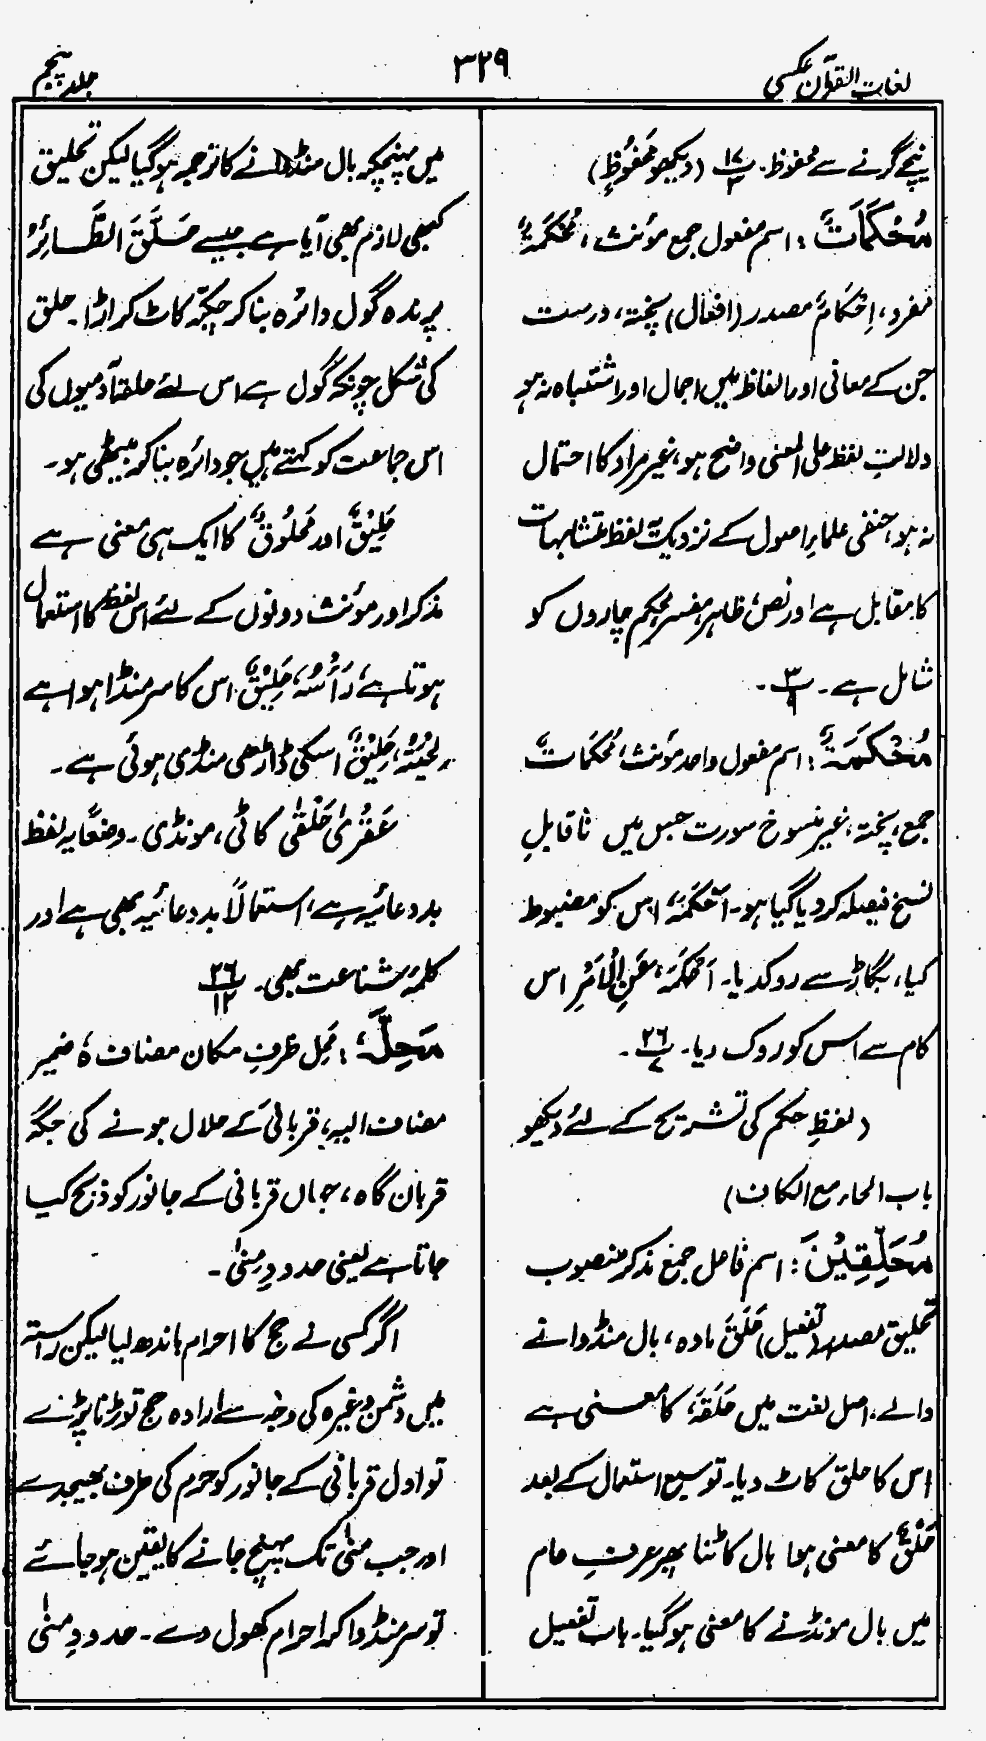 لغات القرآن عکسی
۳۲۹
جلد پنجم
نیچے گرنے سے محفوظ۔ پ ۱۷/۲ (دیکھو مَحْفُوظٍ)
مُحْكَمَاتٌ: اسم مفعول جمع مؤنث، مُحْكَمَةٌ
مفرد، اِحْكَامٌ مصدر (افعال) پختہ، درست
جن کے معانی اور الفاظ میں اجمال اور اشتباہ نہ ہو
دلالتِ لفظ علی المعنی واضح ہو، غیر مراد کا احتمال
نہ ہو، حنفی علماء اصول کے نزدیک یہ لفظ متشابہات
کا مقابل ہے اور نص، ظاہر، مفسر، محکم چاروں کو
شامل ہے۔ پ ۳/۹۔
مُحْكَمَةٌ: اسم مفعول واحد مؤنث، مُحْكَمَاتٌ
جمع، پختہ، غیر منسوخ سورت جس میں ناقابلِ
نسخ فیصلہ کر دیا گیا ہو۔ اَحْكَمَهٗ، اس کو مضبوط
کیا، بگاڑ سے روکدیا۔ اَحْكَمَهٗ عَنِ الْاَمْرِ اس
کام سے اس کو روک دیا۔ پ ۲۶/۷۔
(لفظِ حکم کی تشریح کے لئے دیکھو
باب الحاء مع الکاف)
مُحَلِّقِیْنَ: اسم فاعل جمع مذکر منصوب
تحلیق مصدر (تفعیل) حَلَقَ مادہ، بال منڈوانے
والے۔ اصل لغت میں حَلَقَهٗ، کا معنی ہے
اس کا حلق کاٹ دیا۔ توسیعِ استعمال کے بعد
حَلْقٌ کا معنی ہوا بال کاٹنا پھر عرفِ عام
میں بال مونڈنے کا معنی ہوگیا۔ باب تفعیل
میں پہنچکر بال منڈانے کا ترجمہ ہوگیا لیکن تحلیق
کبھی لازم بھی آیا ہے جیسے حَلَّقَ الطَّائِرُ
پرندہ گول دائرہ بنا کر چکر کاٹ کر اڑا۔ حلق
کی شکل چونکہ گول ہے اس لئے حلقۂ آدمیوں کی
اس جماعت کو کہتے ہیں جو دائرہ بنا کر بیٹھی ہو۔
حَلِیْقٌ اور مَحْلُوْقٌ کا ایک ہی معنی ہے
مذکر اور مؤنث دونوں کے لئے اس لفظ کا استعمال
ہوتا ہے رَاْسُهٗ حَلِیْقٌ اس کا سر منڈا ہوا ہے
لِحْیَتُهٗ حَلِیْقٌ اسکی ڈاڑھی منڈی ہوئی ہے۔
عَقْرٰی حَلْقٰی کاٹی، مونڈی۔ وضعًا یہ لفظ
بددعائیہ ہے، استعمالاً بددعائیہ بھی ہے اور
کلمۂ شناعت بھی۔ پ ۲۶/۱۲
مَحِلَّهٗ: مَحِل ظرفِ مکان مضاف هٗ ضمیر
مضاف الیہ، قربانی کے حلال ہونے کی جگہ
قربان گاہ، جہاں قربانی کے جانور کو ذبح کیا
جاتا ہے یعنی حدودِ مِنیٰ۔
اگر کسی نے حج کا احرام باندھ لیا لیکن راستہ
میں دشمن وغیرہ کی وجہ سے ارادہ حج توڑنا پڑے
تو اول قربانی کے جانور کو حرم کی طرف بھیجدے
اور جب منیٰ تک پہنچ جانے کا یقین ہو جائے
تو سر منڈوا کر احرام کھول دے۔ حدودِ مِنیٰ